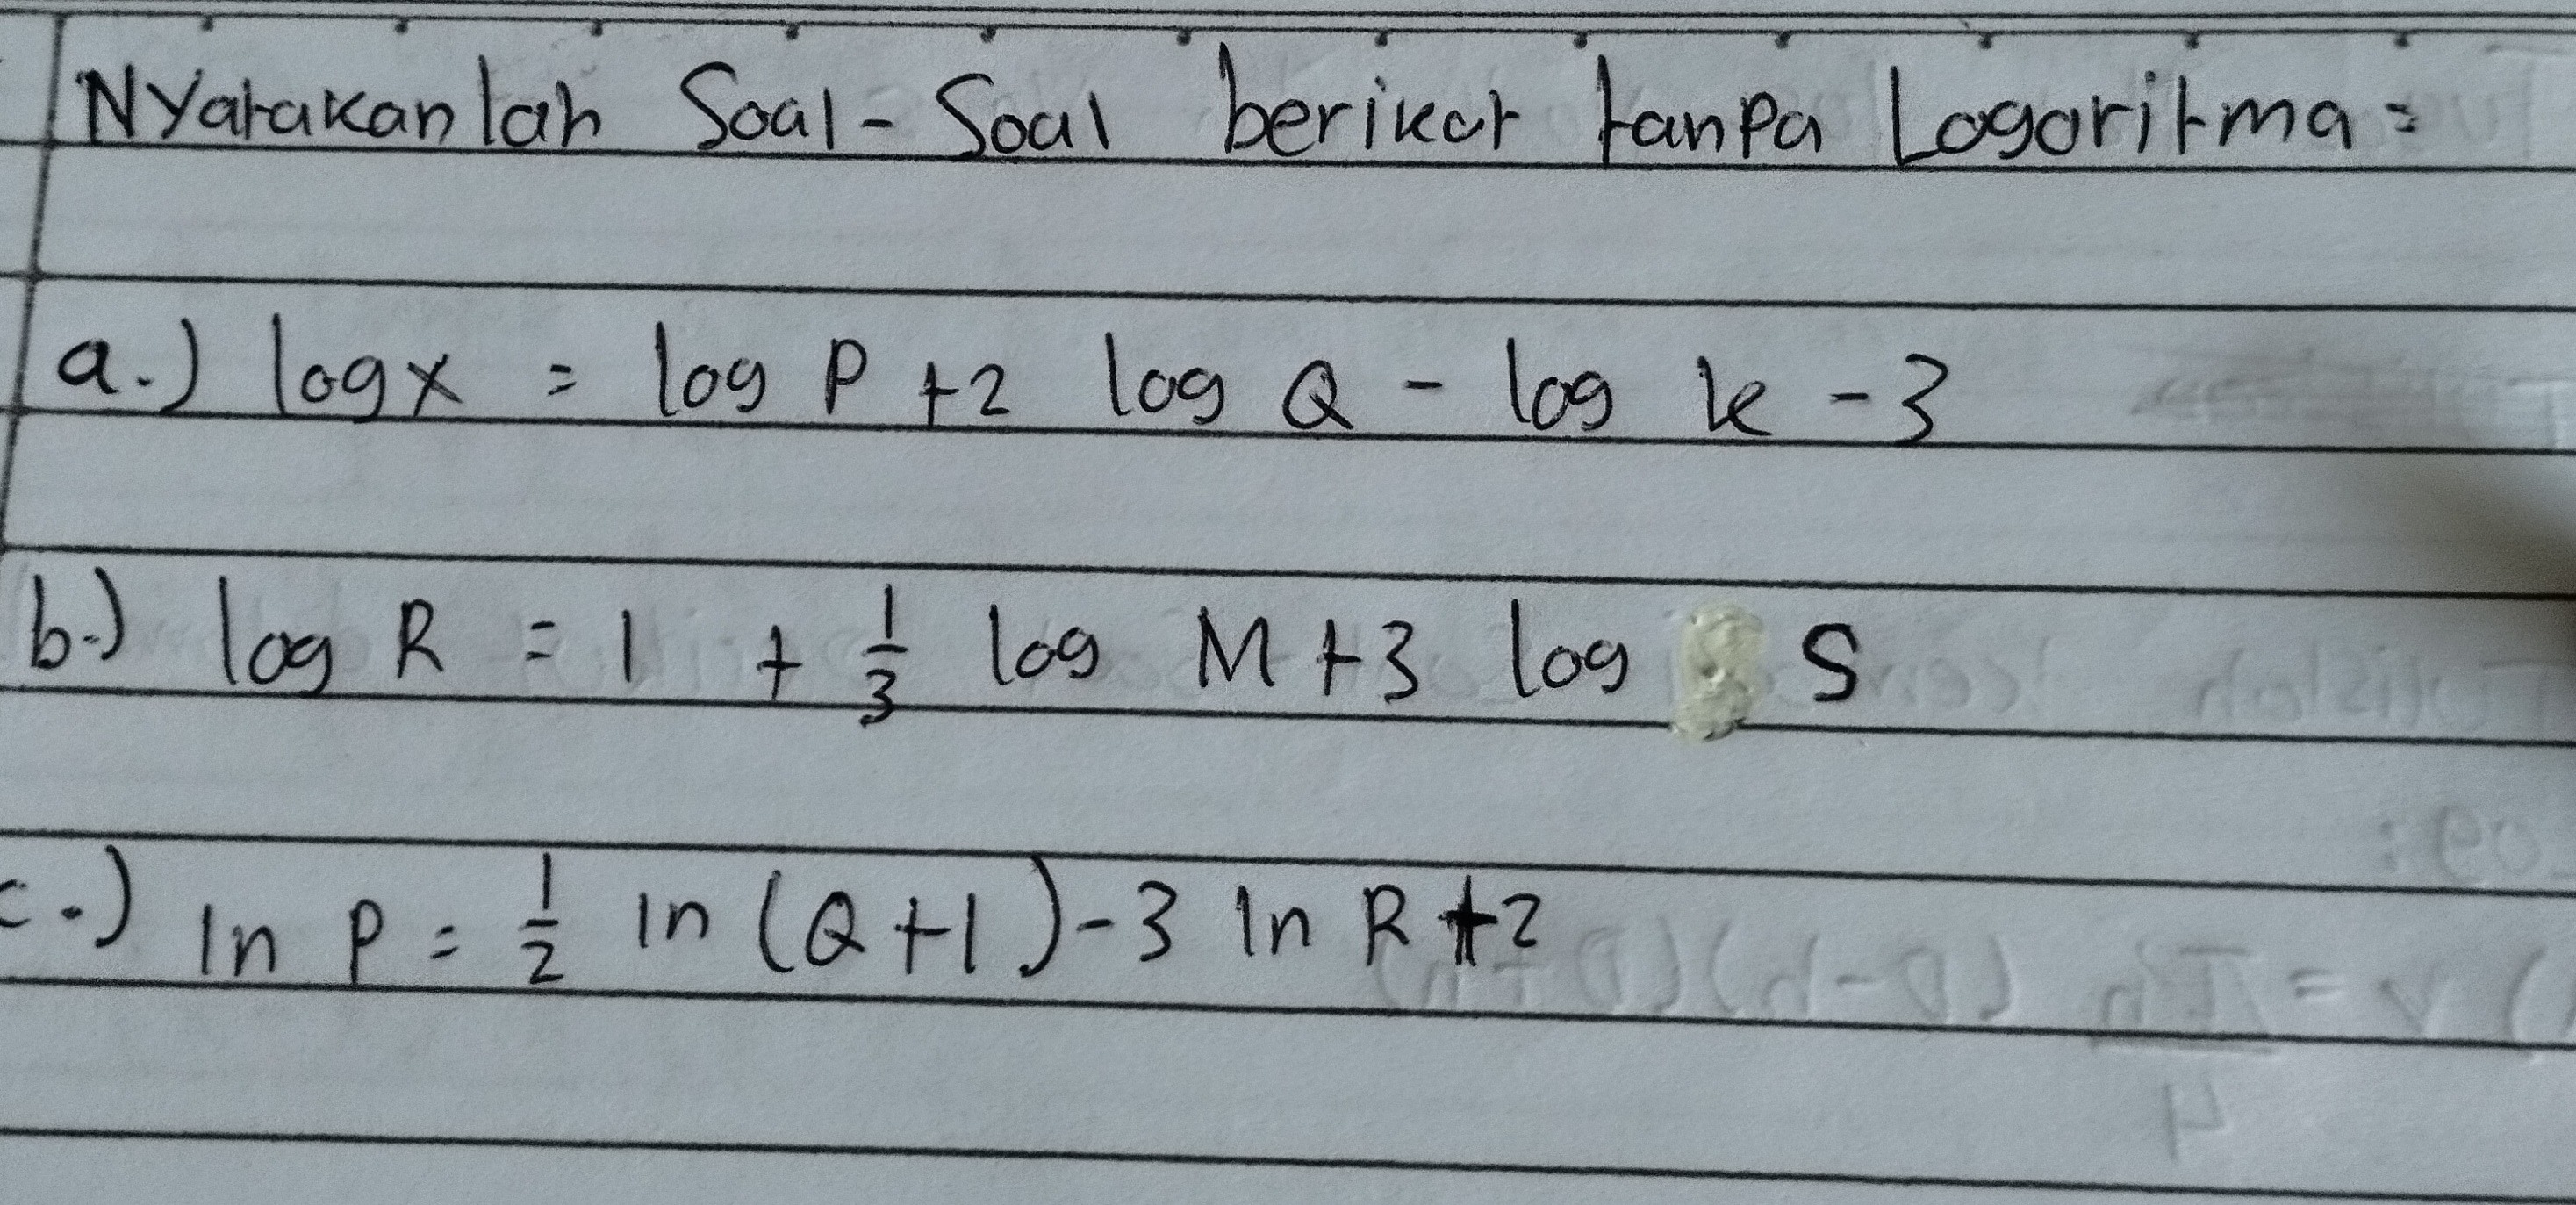 Nyatakanlah Soal-Soal berikut tanpa Logoritma:
a.) log x = log P + 2 log Q - log k - 3
b.) log R = 1 + 1/3 log M + 3 log S
c.) ln P = 1/2 ln (Q+1) - 3 ln R + 2